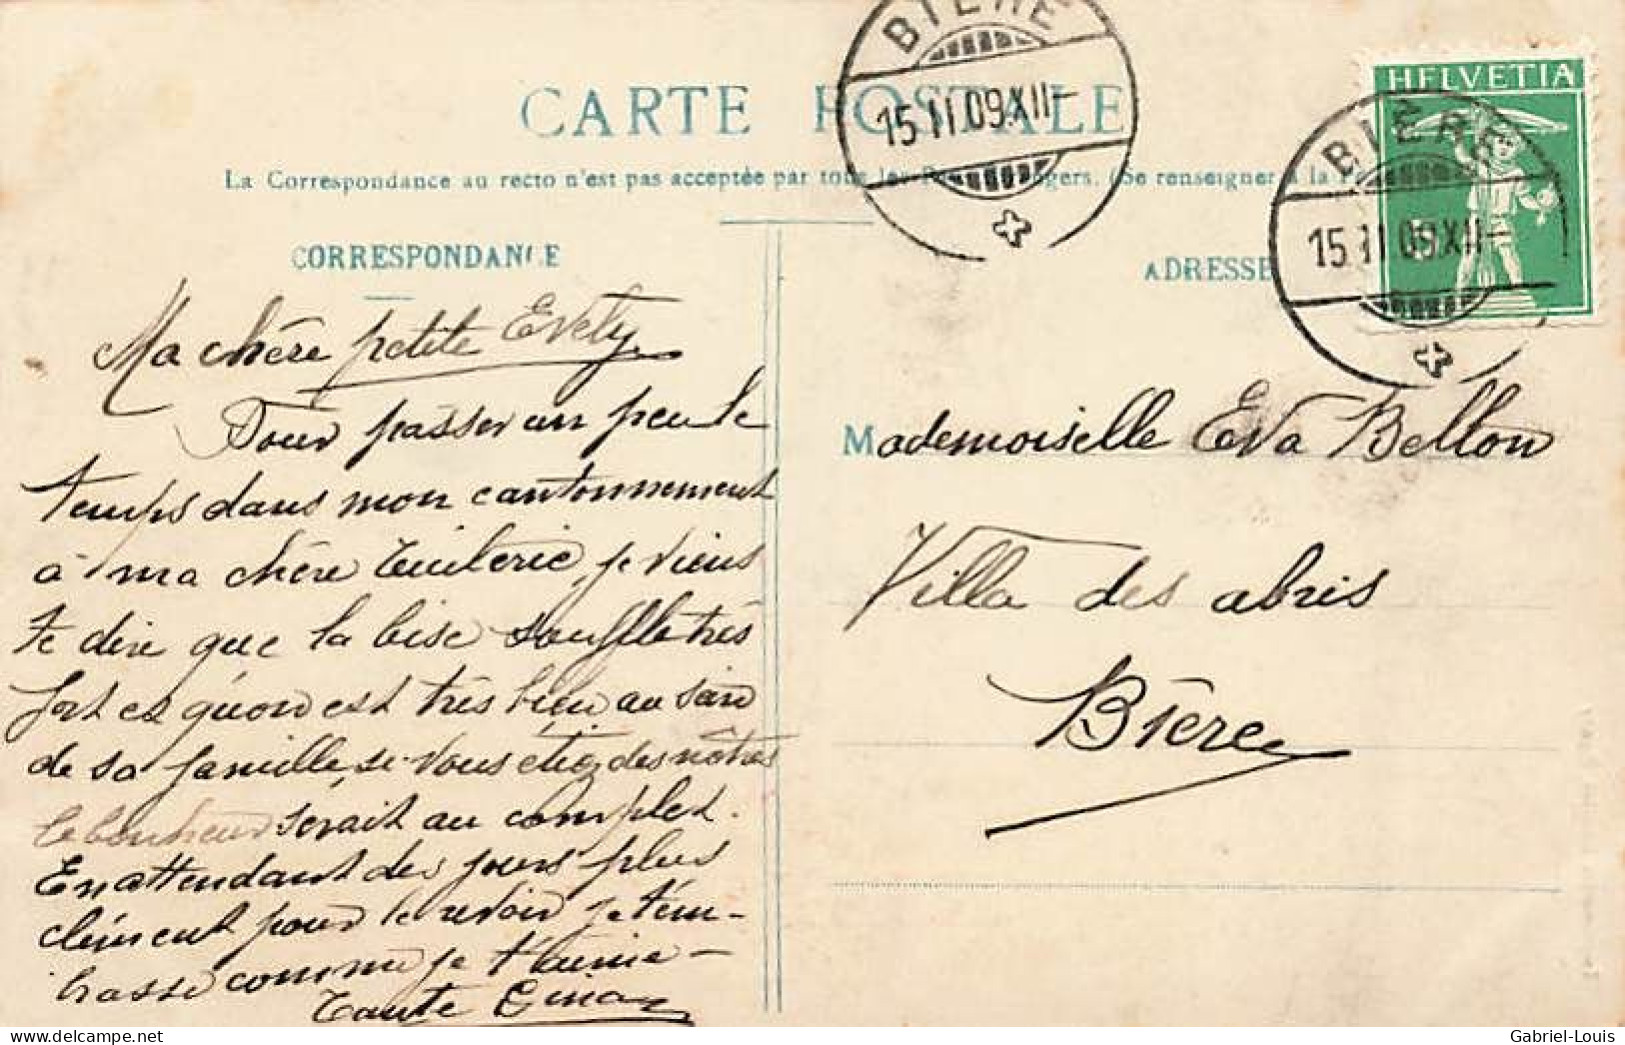 CARTE POSTALE
La Correspondance au recto n'est pas acceptée par tous les (Se renseigner à la
CORRESPONDANCE
ADRESSE
BIÈRE
15.II.09.XII-
HELVETIA
BIÈRE
15.II.09.XII-
Ma chère petite Evely
Pour passer un peu le
temps dans mon cantonnement
à ma chère tuilerie, je viens
te dire que la bise souffle très
fort et qu'on est très bien au sein
de sa famille, si vous étiez des nôtres
le bonheur serait au complet.
En attendant des jours plus
clément pour le revoir je t'em-
brasse comme je t'aime -
Tante Gina
Mademoiselle Eva Bellon
Villa des abris
Bière
Gabriel-Louis